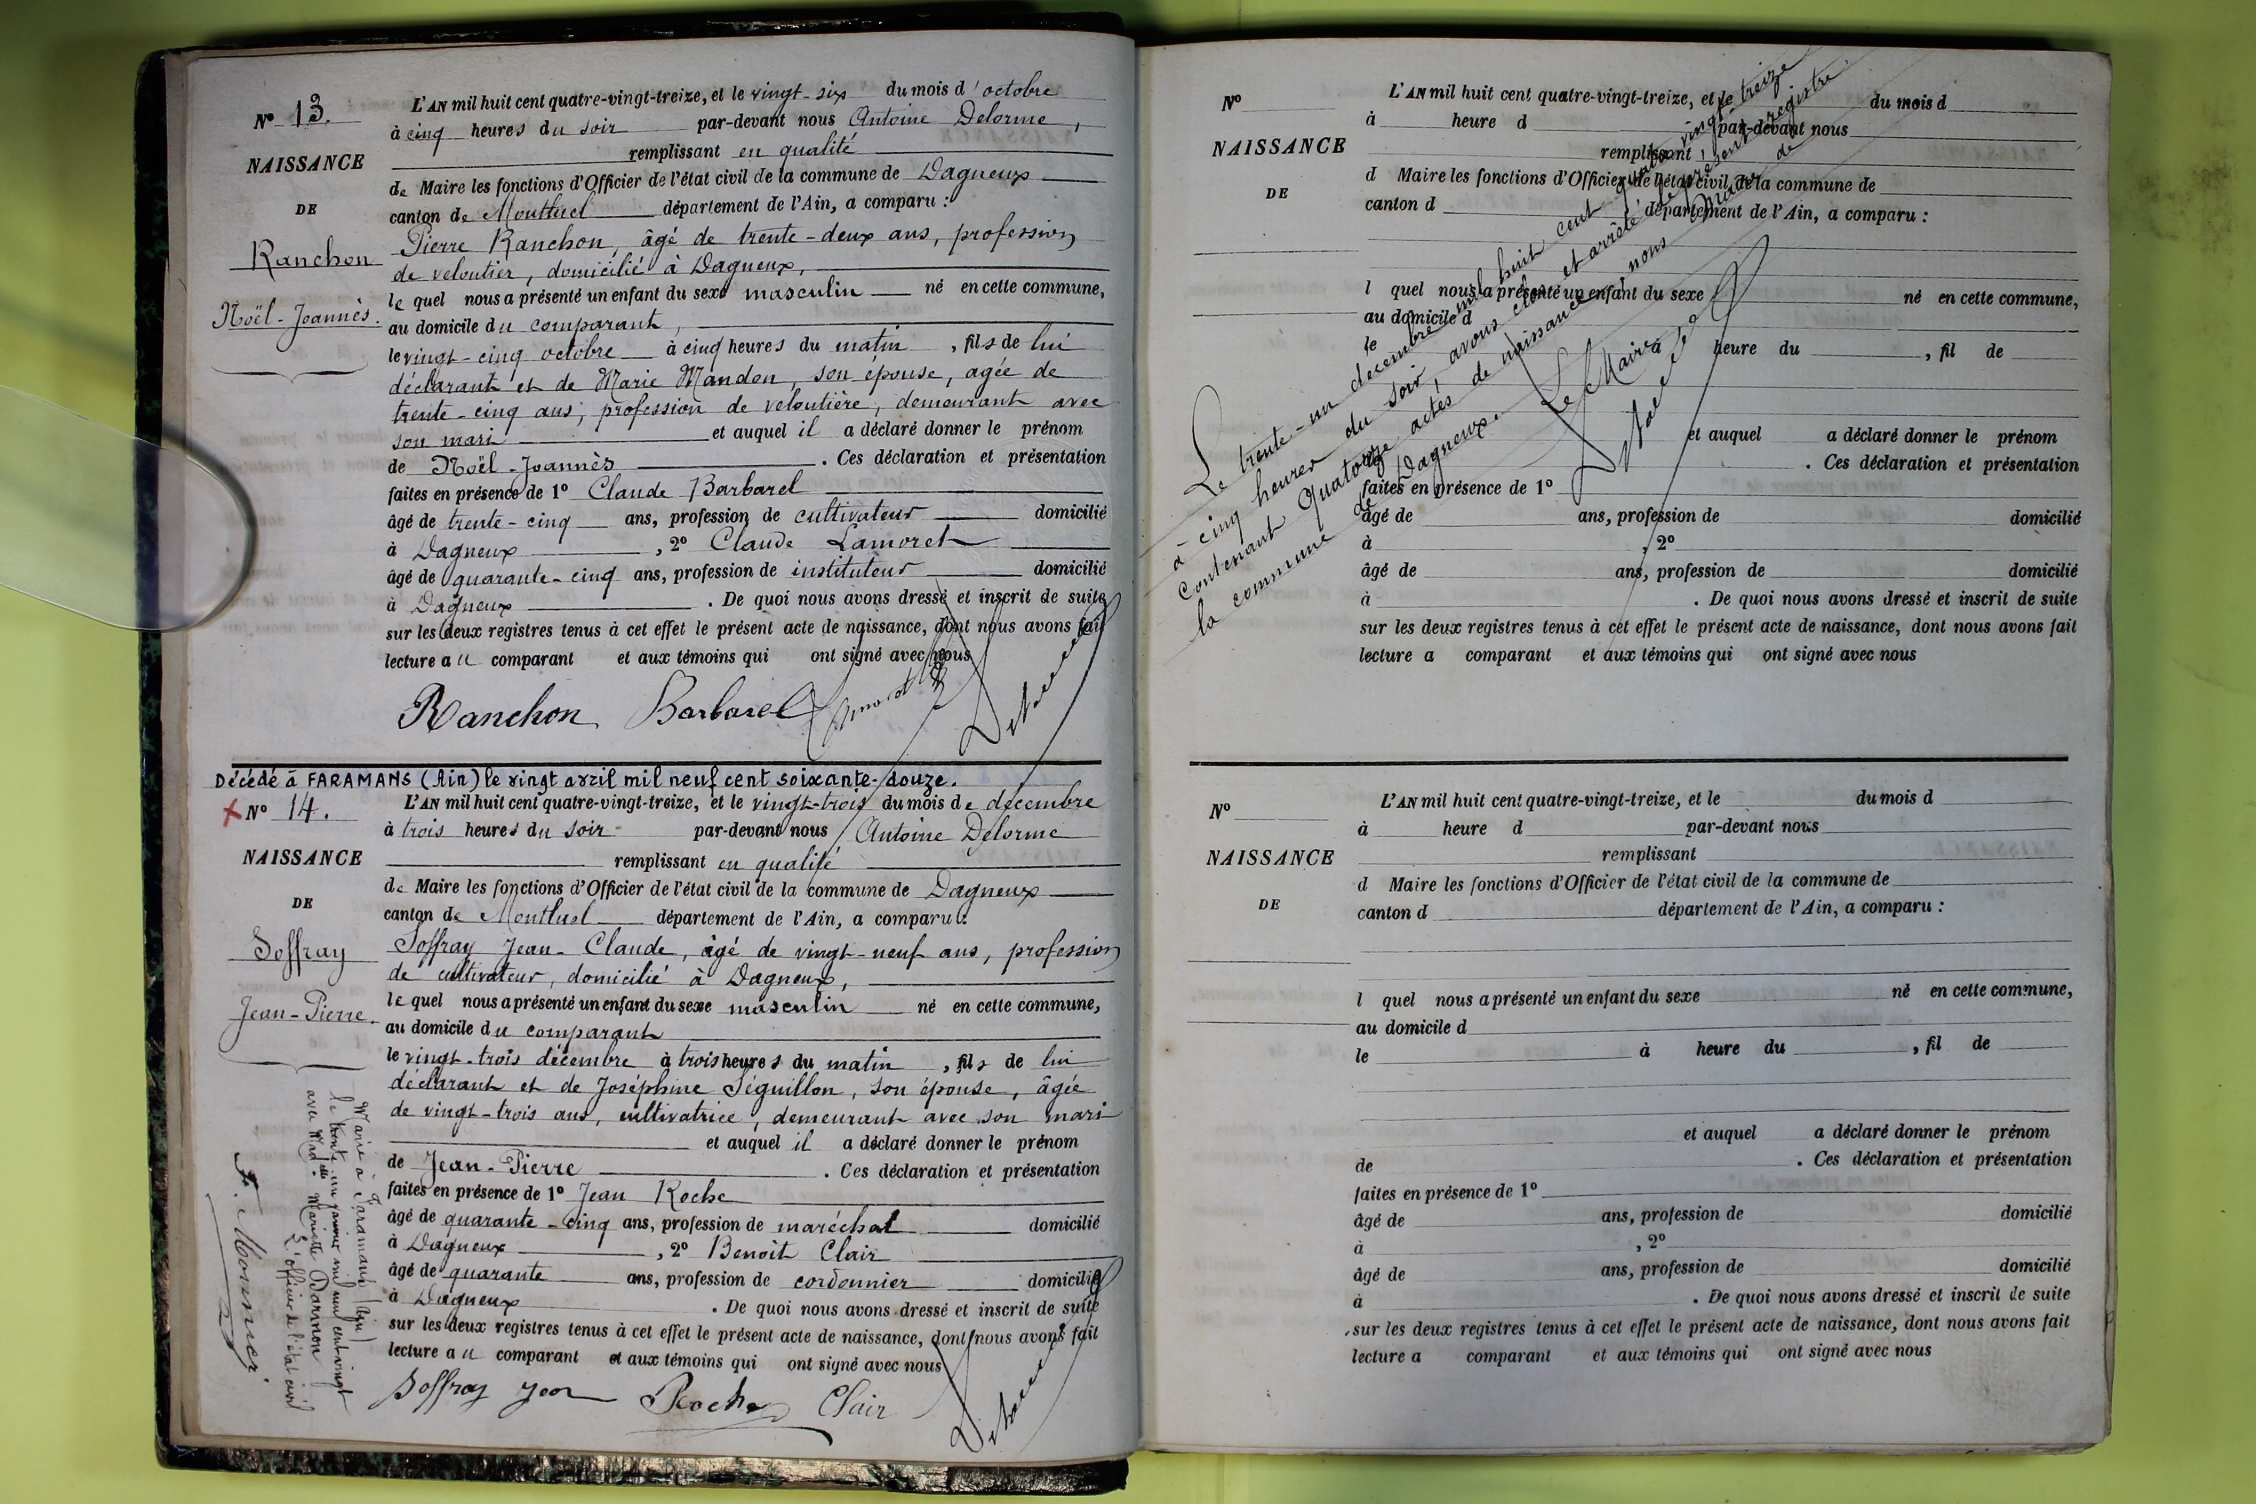 N° 13.
NAISSANCE
DE
Ranchon
Noël-Joannès.
L'AN mil huit cent quatre-vingt-treize, et le vingt-six du mois d'octobre
à cinq heures du soir par-devant nous Antoine Delorme,
remplissant en qualité
de Maire les fonctions d'Officier de l'état civil de la commune de Dagneux
canton de Montluel département de l'Ain, a comparu :
Pierre Ranchon, âgé de trente-deux ans, profession
de veloutier, domicilié à Dagneux,
le quel nous a présenté un enfant du sexe masculin né en cette commune,
au domicile du comparant,
le vingt-cinq octobre à cinq heures du matin, fils de lui
déclarant et de Marie Mandon, son épouse, agée de
trente-cinq ans, profession de veloutière, demeurant avec
son mari et auquel il a déclaré donner le prénom
de Noël-Joannès. Ces déclaration et présentation
faites en présence de 1° Claude Barbarel
âgé de trente-cinq ans, profession de cultivateur domicilié
à Dagneux, 2° Claude Lamoret
âgé de quarante-cinq ans, profession de instituteur domicilié
à Dagneux. De quoi nous avons dressé et inscrit de suite
sur les deux registres tenus à cet effet le présent acte de naissance, dont nous avons fait
lecture au comparant et aux témoins qui ont signé avec nous
Ranchon Barbarel Delorme
Décédé à FARAMANS (Ain) le vingt avril mil neuf cent soixante-douze.
N° 14.
NAISSANCE
DE
Soffray
Jean-Pierre.
L'AN mil huit cent quatre-vingt-treize, et le vingt-trois du mois de décembre
à trois heures du soir par-devant nous Antoine Delorme
remplissant en qualité
de Maire les fonctions d'Officier de l'état civil de la commune de Dagneux
canton de Montluel département de l'Ain, a comparu :
Soffray Jean-Claude, âgé de vingt-neuf ans, profession
de cultivateur, domicilié à Dagneux,
le quel nous a présenté un enfant du sexe masculin né en cette commune,
au domicile du comparant
le vingt-trois décembre à trois heures du matin, fils de lui
déclarant et de Joséphine Séguillon, son épouse, âgée
de vingt-trois ans, cultivatrice, demeurant avec son mari
et auquel il a déclaré donner le prénom
de Jean-Pierre. Ces déclaration et présentation
faites en présence de 1° Jean Roche
âgé de quarante-cinq ans, profession de maréchal domicilié
à Dagneux, 2° Benoît Clair
âgé de quarante ans, profession de cordonnier domicilié
à Dagneux. De quoi nous avons dressé et inscrit de suite
sur les deux registres tenus à cet effet le présent acte de naissance, dont nous avons fait
lecture au comparant et aux témoins qui ont signé avec nous
Soffray Jean Roche Clair Delorme
Marié à Faramans (Ain)
le trente un janvier mil neuf cent vingt
avec Marinette
L'officier de l'état civil
F. Monnier
N°
NAISSANCE
DE
L'AN mil huit cent quatre-vingt-treize, et le du mois d
à heure d par-devant nous
remplissant
d Maire les fonctions d'Officier de l'état civil de la commune de
canton d département de l'Ain, a comparu :
l quel nous a présenté un enfant du sexe né en cette commune,
au domicile d
le à heure du , fil de
et auquel a déclaré donner le prénom
de . Ces déclaration et présentation
faites en présence de 1°
âgé de ans, profession de domicilié
à , 2°
âgé de ans, profession de domicilié
à . De quoi nous avons dressé et inscrit de suite
sur les deux registres tenus à cet effet le présent acte de naissance, dont nous avons fait
lecture a comparant et aux témoins qui ont signé avec nous
Le trente-un décembre mil huit cent quatre vingt-treize
à cinq heures du soir, avons clos et arrêté le présent registre
Contenant Quatorze actes de naissance, nous Maire de
la commune de Dagneux.
Le Maire
Delorme
N°
NAISSANCE
DE
L'AN mil huit cent quatre-vingt-treize, et le du mois d
à heure d par-devant nous
remplissant
d Maire les fonctions d'Officier de l'état civil de la commune de
canton d département de l'Ain, a comparu :
l quel nous a présenté un enfant du sexe né en cette commune,
au domicile d
le à heure du , fil de
et auquel a déclaré donner le prénom
de . Ces déclaration et présentation
faites en présence de 1°
âgé de ans, profession de domicilié
à , 2°
âgé de ans, profession de domicilié
à . De quoi nous avons dressé et inscrit de suite
sur les deux registres tenus à cet effet le présent acte de naissance, dont nous avons fait
lecture a comparant et aux témoins qui ont signé avec nous